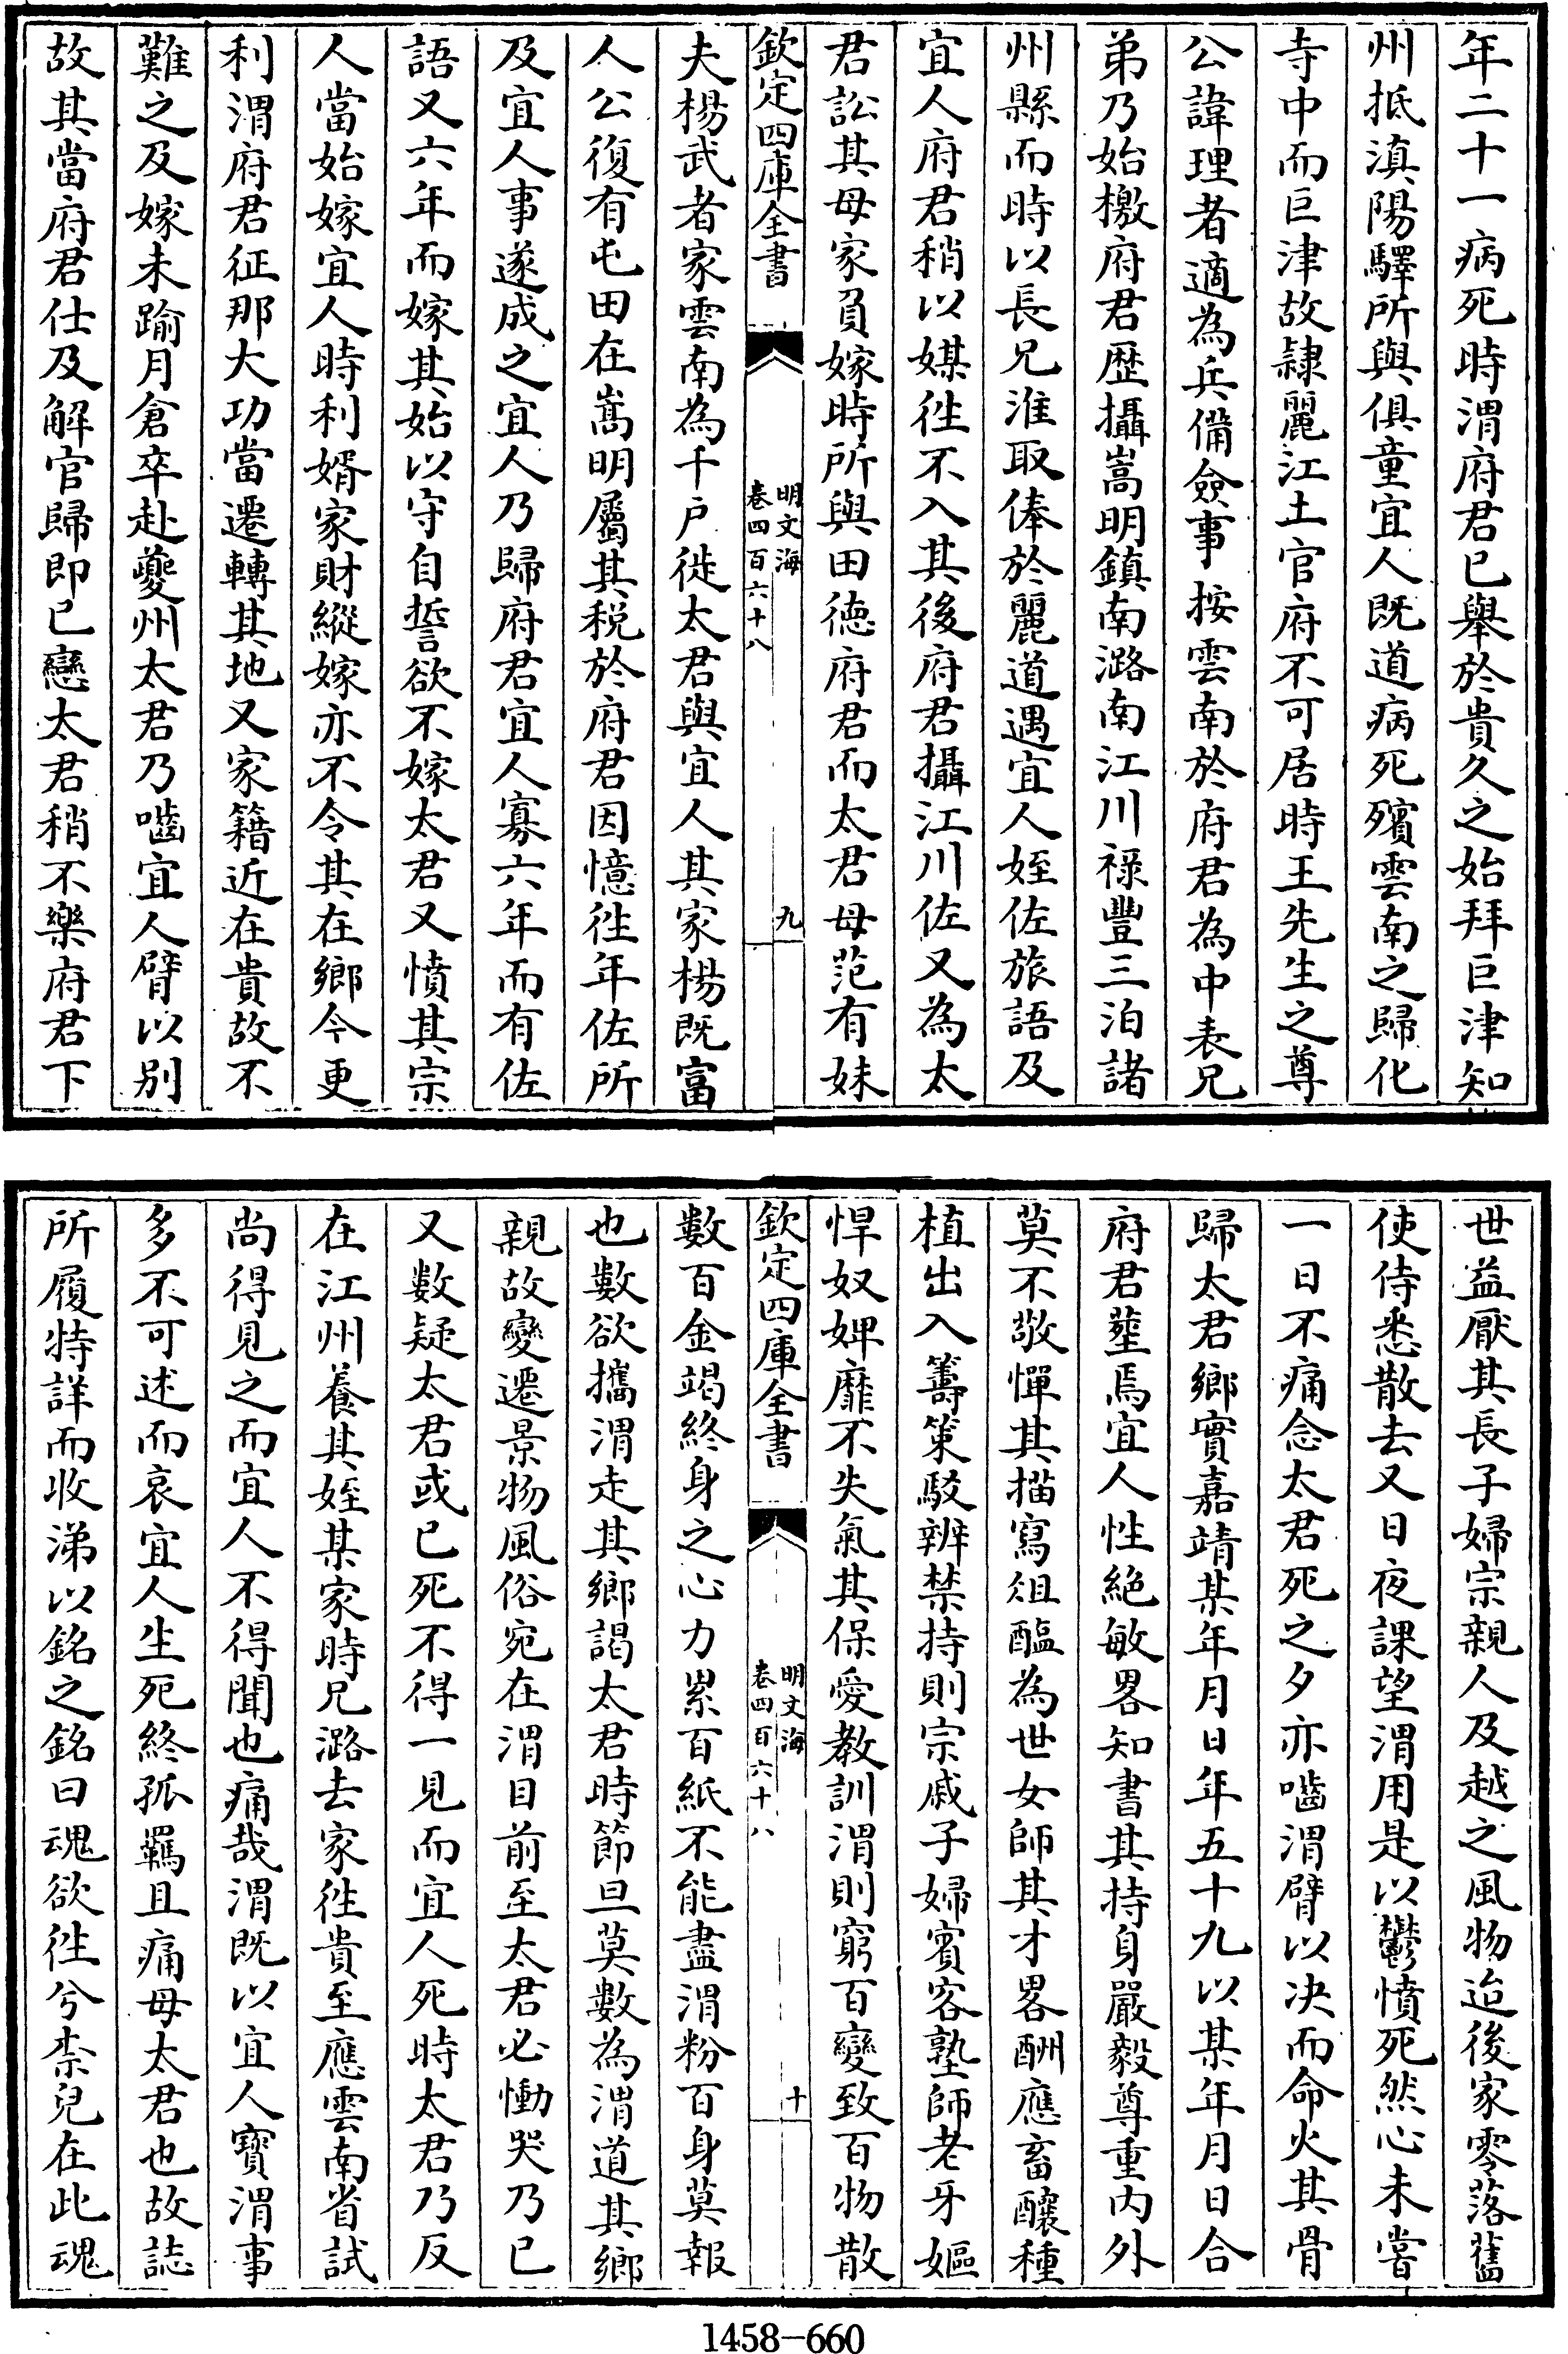 年二十一病死時渭府君已舉於貴久之始拜巨津知
州抵滇陽驛所與俱童宜人既道病死殯雲南之歸化
寺中而巨津故隸麗江土官府不可居時王先生之尊
公諱理者適為兵備僉事按雲南於府君為中表兄
弟乃始檄府君歴攝嵩明鎮南潞南江川祿豐三泊諸
州縣而時以長兄淮取俸於麗道遇宜人姪佐旅語及
宜人府君稍以媒徃不入其後府君攝江川佐又為太
君訟其母家負嫁時所與田德府君而太君母范有妹
欽定四庫全書
明文海
卷四百六十八
九
夫楊武者家雲南為千戶徙太君與宜人其家楊既富
人公復有屯田在嵩明屬其税於府君因憶徃年佐所
及宜人事遂成之宜人乃歸府君宜人寡六年而有佐
語又六年而嫁其始以守自誓欲不嫁太君又憤其宗
人當始嫁宜人時利婿家財縱嫁亦不令其在鄉今更
利渭府君征那大功當遷轉其地又家籍近在貴故不
難之及嫁未踰月倉卒赴夔州太君乃嚙宜人臂以别
故其當府君仕及解官歸即已戀太君稍不樂府君下
世益厭其長子婦宗親人及越之風物迨後家零落舊
使侍悉散去又日夜課望渭用是以鬱憤死然心未嘗
一日不痛念太君死之夕亦嚙渭臂以决而命火其骨
歸太君鄉實嘉靖某年月日年五十九以某年月日合
府君塟焉宜人性絶敏畧知書其持身嚴毅尊重内外
莫不敬憚其描寫俎醢為世女師其才畧酬應畜釀種
植出入籌策駁辨禁持則宗戚子婦賓客塾師老牙嫗
悍奴婢靡不失氣其保愛教訓渭則窮百變致百物散
欽定四庫全書
明文海
卷四百六十八
十
數百金竭終身之心力累百紙不能盡渭粉百身莫報
也數欲攜渭走其鄉謁太君時節旦莫數為渭道其鄉
親故變遷景物風俗宛在渭目前至太君必慟哭乃已
又數疑太君或已死不得一見而宜人死時太君乃反
在江州養其姪某家時兄潞去家徃貴至應雲南省試
尚得見之而宜人不得聞也痛哉渭既以宜人寶渭事
多不可述而哀宜人生死終孤羈且痛母太君也故誌
所履特詳而收涕以銘之銘曰魂欲徃兮柰兒在此魂
1458-660